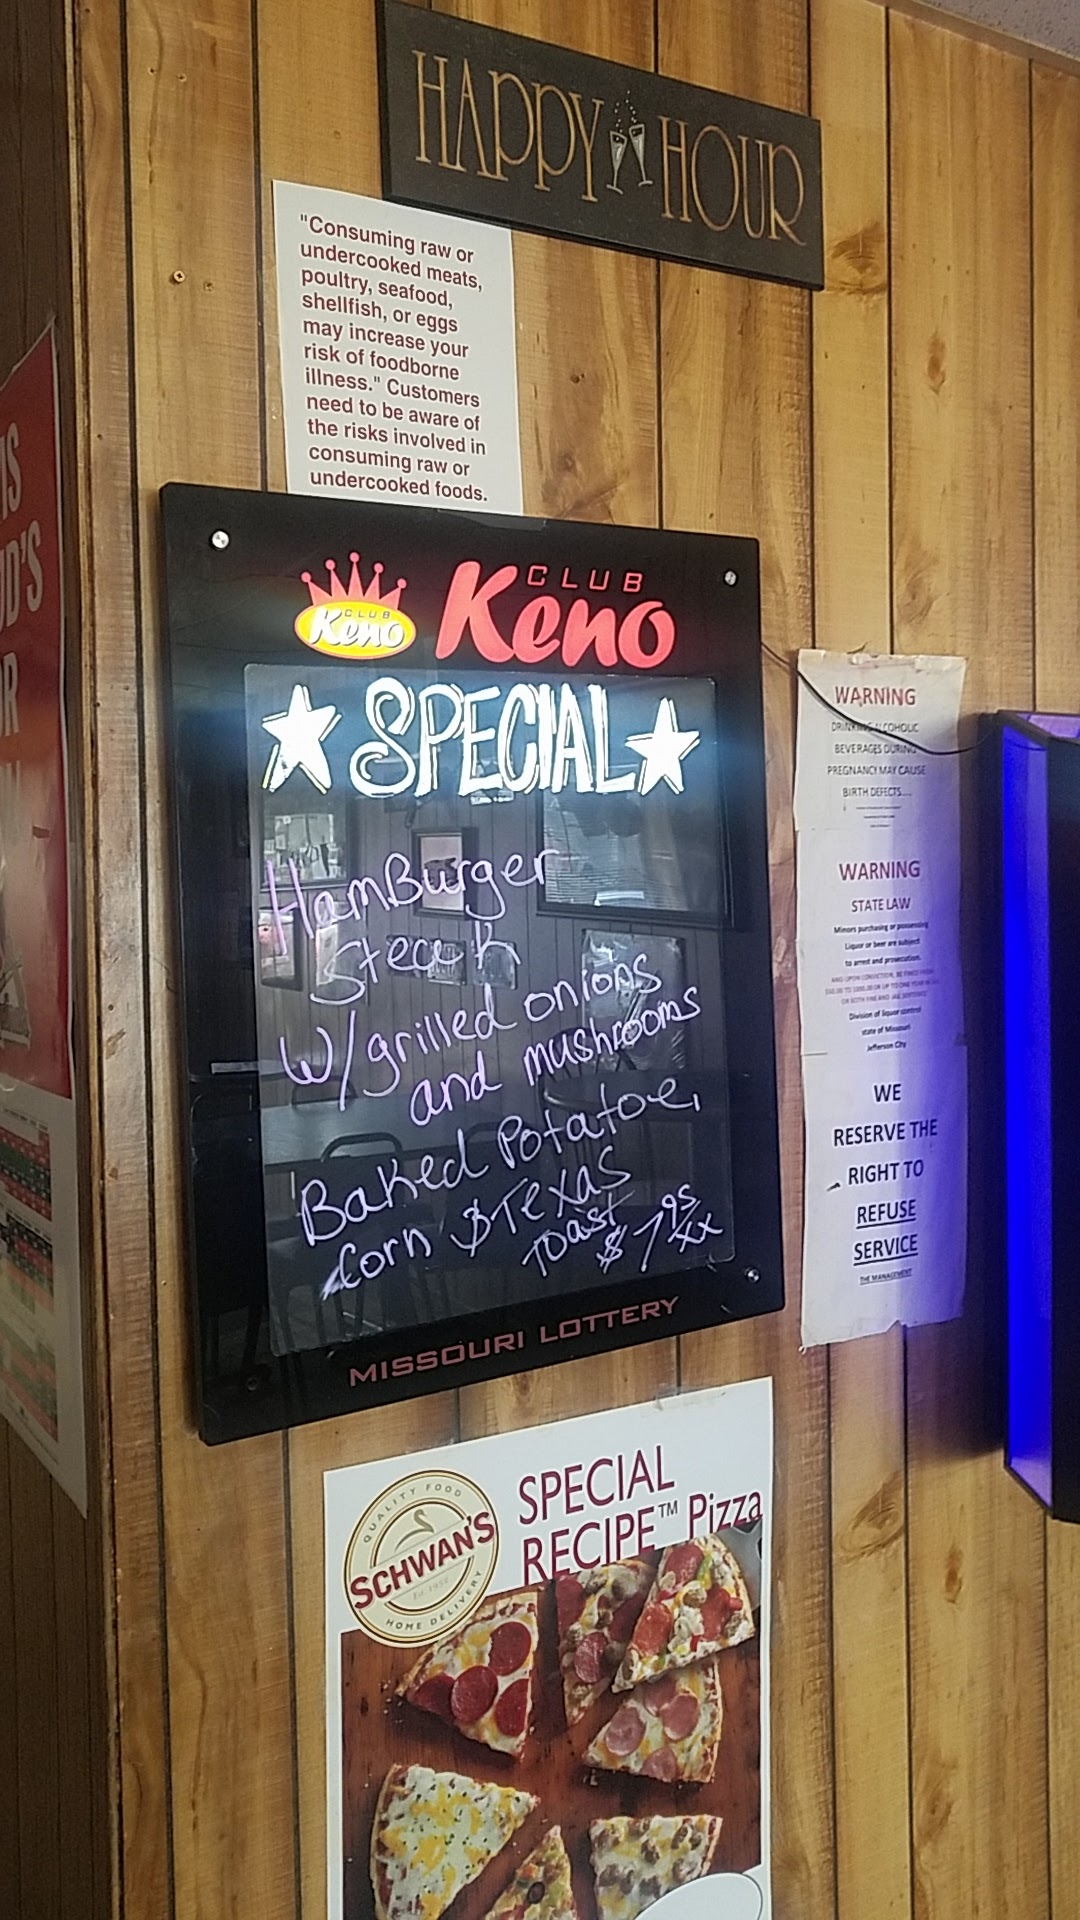 HAPPY HOUR
"Consuming raw or
undercooked meats,
poultry, seafood,
shellfish, or eggs
may increase your
risk of foodborne
illness." Customers
need to be aware of
the risks involved in
consuming raw or
undercooked foods.
CLUB
Keno
CLUB
Keno
SPECIAL
HamBurger
Steak
W/grilled onions
and mushrooms
Baked Potatoe,
Corn $ Texas
Toast
$ 7.95
MISSOURI LOTTERY
WARNING
DRINKING ALCOHOLIC
BEVERAGES DURING
PREGNANCY MAY CAUSE
BIRTH DEFECTS....
WARNING
STATE LAW
Minors purchasing or possessing
Liquor or beer are subject
to arrest and prosecution.
Division of liquor control
state of Missouri
Jefferson City
WE
RESERVE THE
RIGHT TO
REFUSE
SERVICE
THE MANAGEMENT
QUALITY FOOD
SCHWAN'S
HOME DELIVERY
SPECIAL
RECIPE™ Pizza